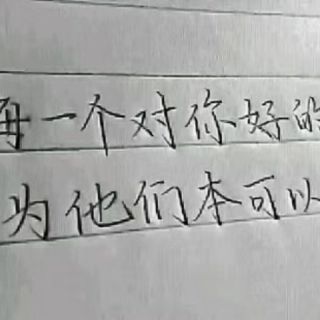 每一个对你好的
为他们本可以